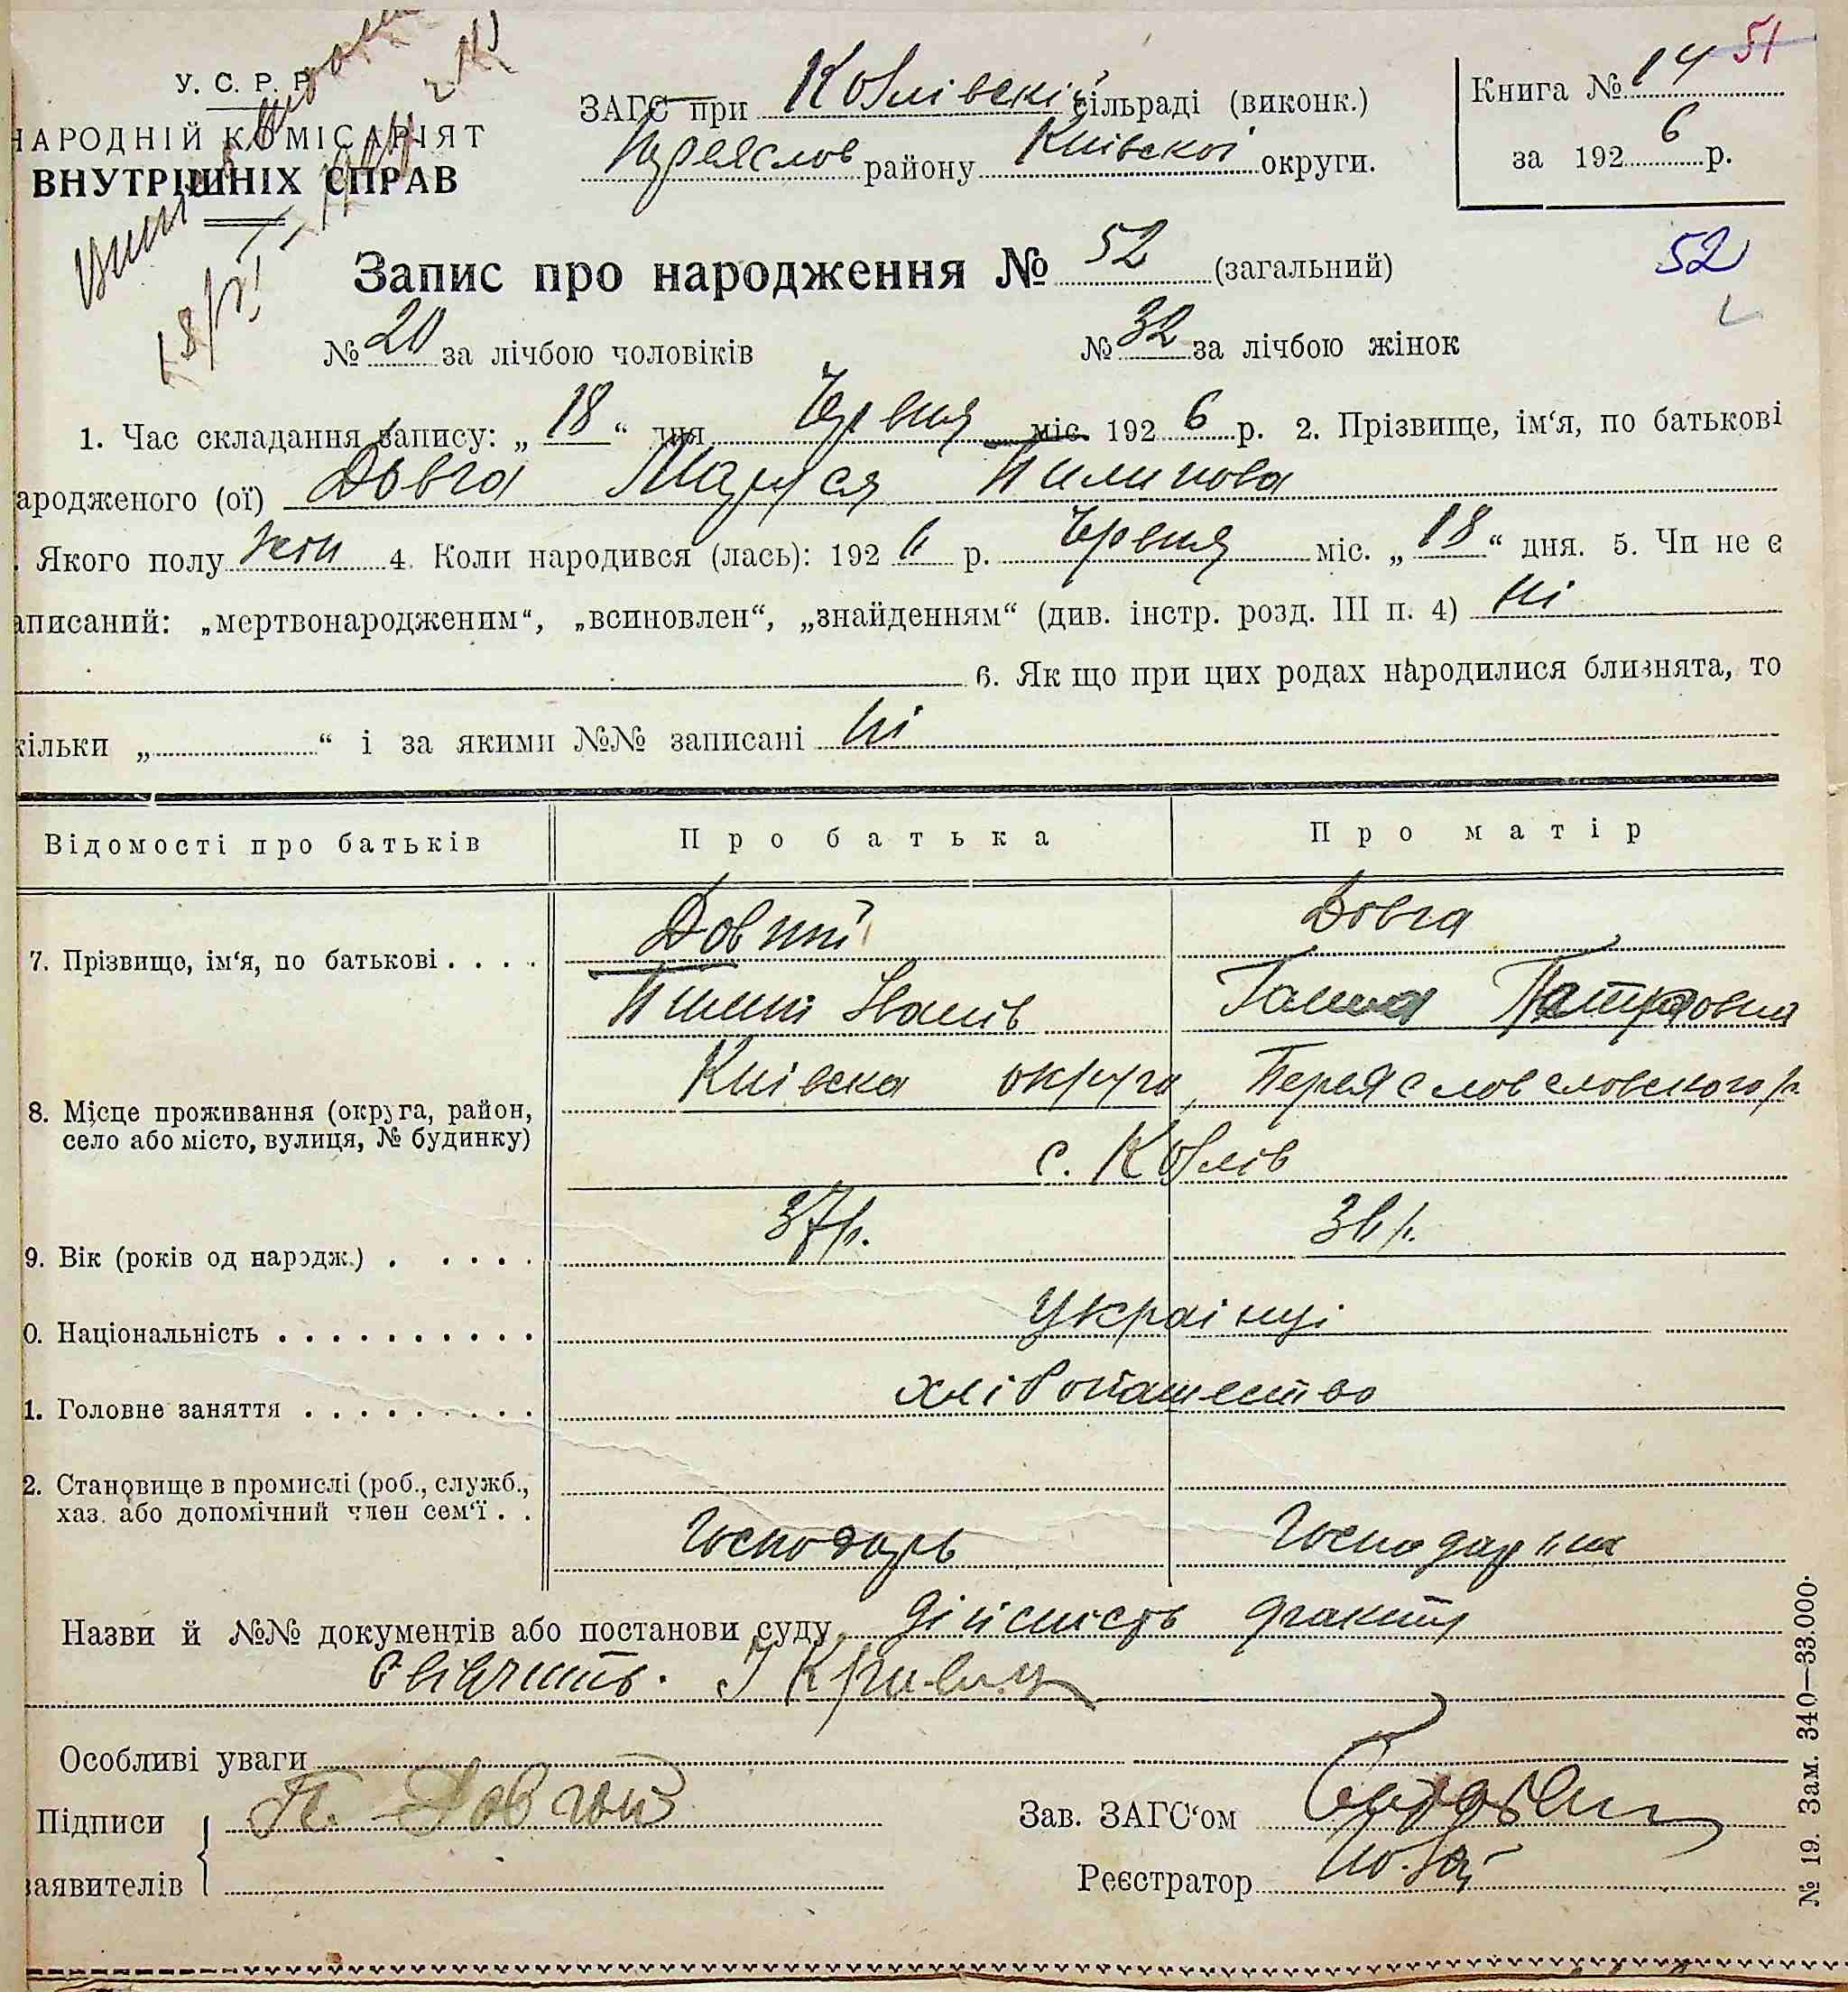 51
У. С. Р. Р.
НАРОДНІЙ КОМІСАРІЯТ
ВНУТРІШНІХ СПРАВ
ЗАГС при Ковлівскій сільраді (виконк.)
Переяслов району Київської округи.
Книга № 14
за 1926 р.
Запис про народження № 52 (загальний)
52
№ 20 за лічбою чоловіків № 32 за лічбою жінок
1. Час складання запису: „ 18 “ дня Червня міс. 1926 р. 2. Прізвище, ім‘я, по батькові
ародженого (ої) Довга Маруся Пилипова
. Якого полу жон 4. Коли народився (лась): 1926 р. Червня міс. „ 18 “ дня. 5. Чи не є
аписаний: „мертвонародженим“, „всиновлен“, „знайденням“ (див. інстр. розд. III п. 4) ні
6. Як що при цих родах народилися близнята, то
кільки „ “ і за якими №№ записані ні
Відомості про батьків Про батька Про матір
7. Прізвище, ім‘я, по батькові . . . . Довгий Довга
Пилип Іванів Ганна Петровна
8. Місце проживання (округа, район, село або місто, вулиця, № будинку) Київска округа, Переясловского р.
с. Ковлів
9. Вік (років од народж.) . . . . . 37 р. 36 р.
0. Національність . . . . . . . . . . Українці
1. Головне заняття . . . . . . . . . хлібопашество
2. Становище в промислі (роб., служб.,
хаз. або допомічний член сем‘ї . . Господарь Господарка
Назви й №№ документів або постанови суду дійсність факту
свідчить. І Кривец
Особливі уваги
Підписи П. Довгий Зав. ЗАГС‘ом
заявителів Реєстратор
№ 19. Зам. 340—33.000.